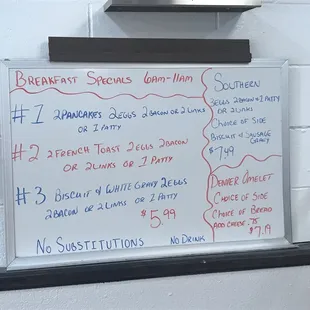 BREAKFAST SPECIALS 6AM-11AM
#1 2 PANCAKES 2 EGGS 2 BACON OR 2 LINKS
OR 1 PATTY
#2 2 FRENCH TOAST 2 EGGS 2 BACON
OR 2 LINKS OR 1 PATTY
#3 BISCUIT & WHITE GRAVY 2 EGGS
2 BACON OR 2 LINKS OR 1 PATTY
$5.99
NO SUBSTITUTIONS NO DRINK
SOUTHERN
2 EGGS 2 BACON OR 1 PATTY
OR 2 LINKS
CHOICE OF SIDE
BISCUIT & SAUSAGE
GRAVY
$7.49
DENVER OMELET
CHOICE OF SIDE
CHOICE OF BREAD
ADD CHEESE .75